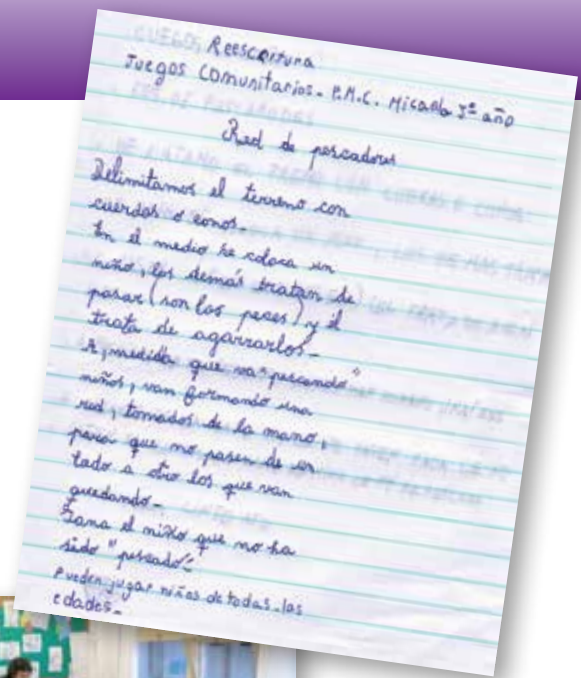 Reescritura
Juegos Comunitarios. P.M.C. Micaela 3º año
Red de pescadores
Delimitamos el terreno con
cuerdas o conos.
En el medio se coloca un
niño, los demás tratan de
pasar (son los peces) y él
trata de agarrarlos.
A, medida que va "pescando"
niños, van formando una
red, tomados de la mano,
para que no pasen de un
lado a otro los que van
quedando.
Gana el niño que no ha
sido "pescado".
Pueden jugar niños de todas las
edades.